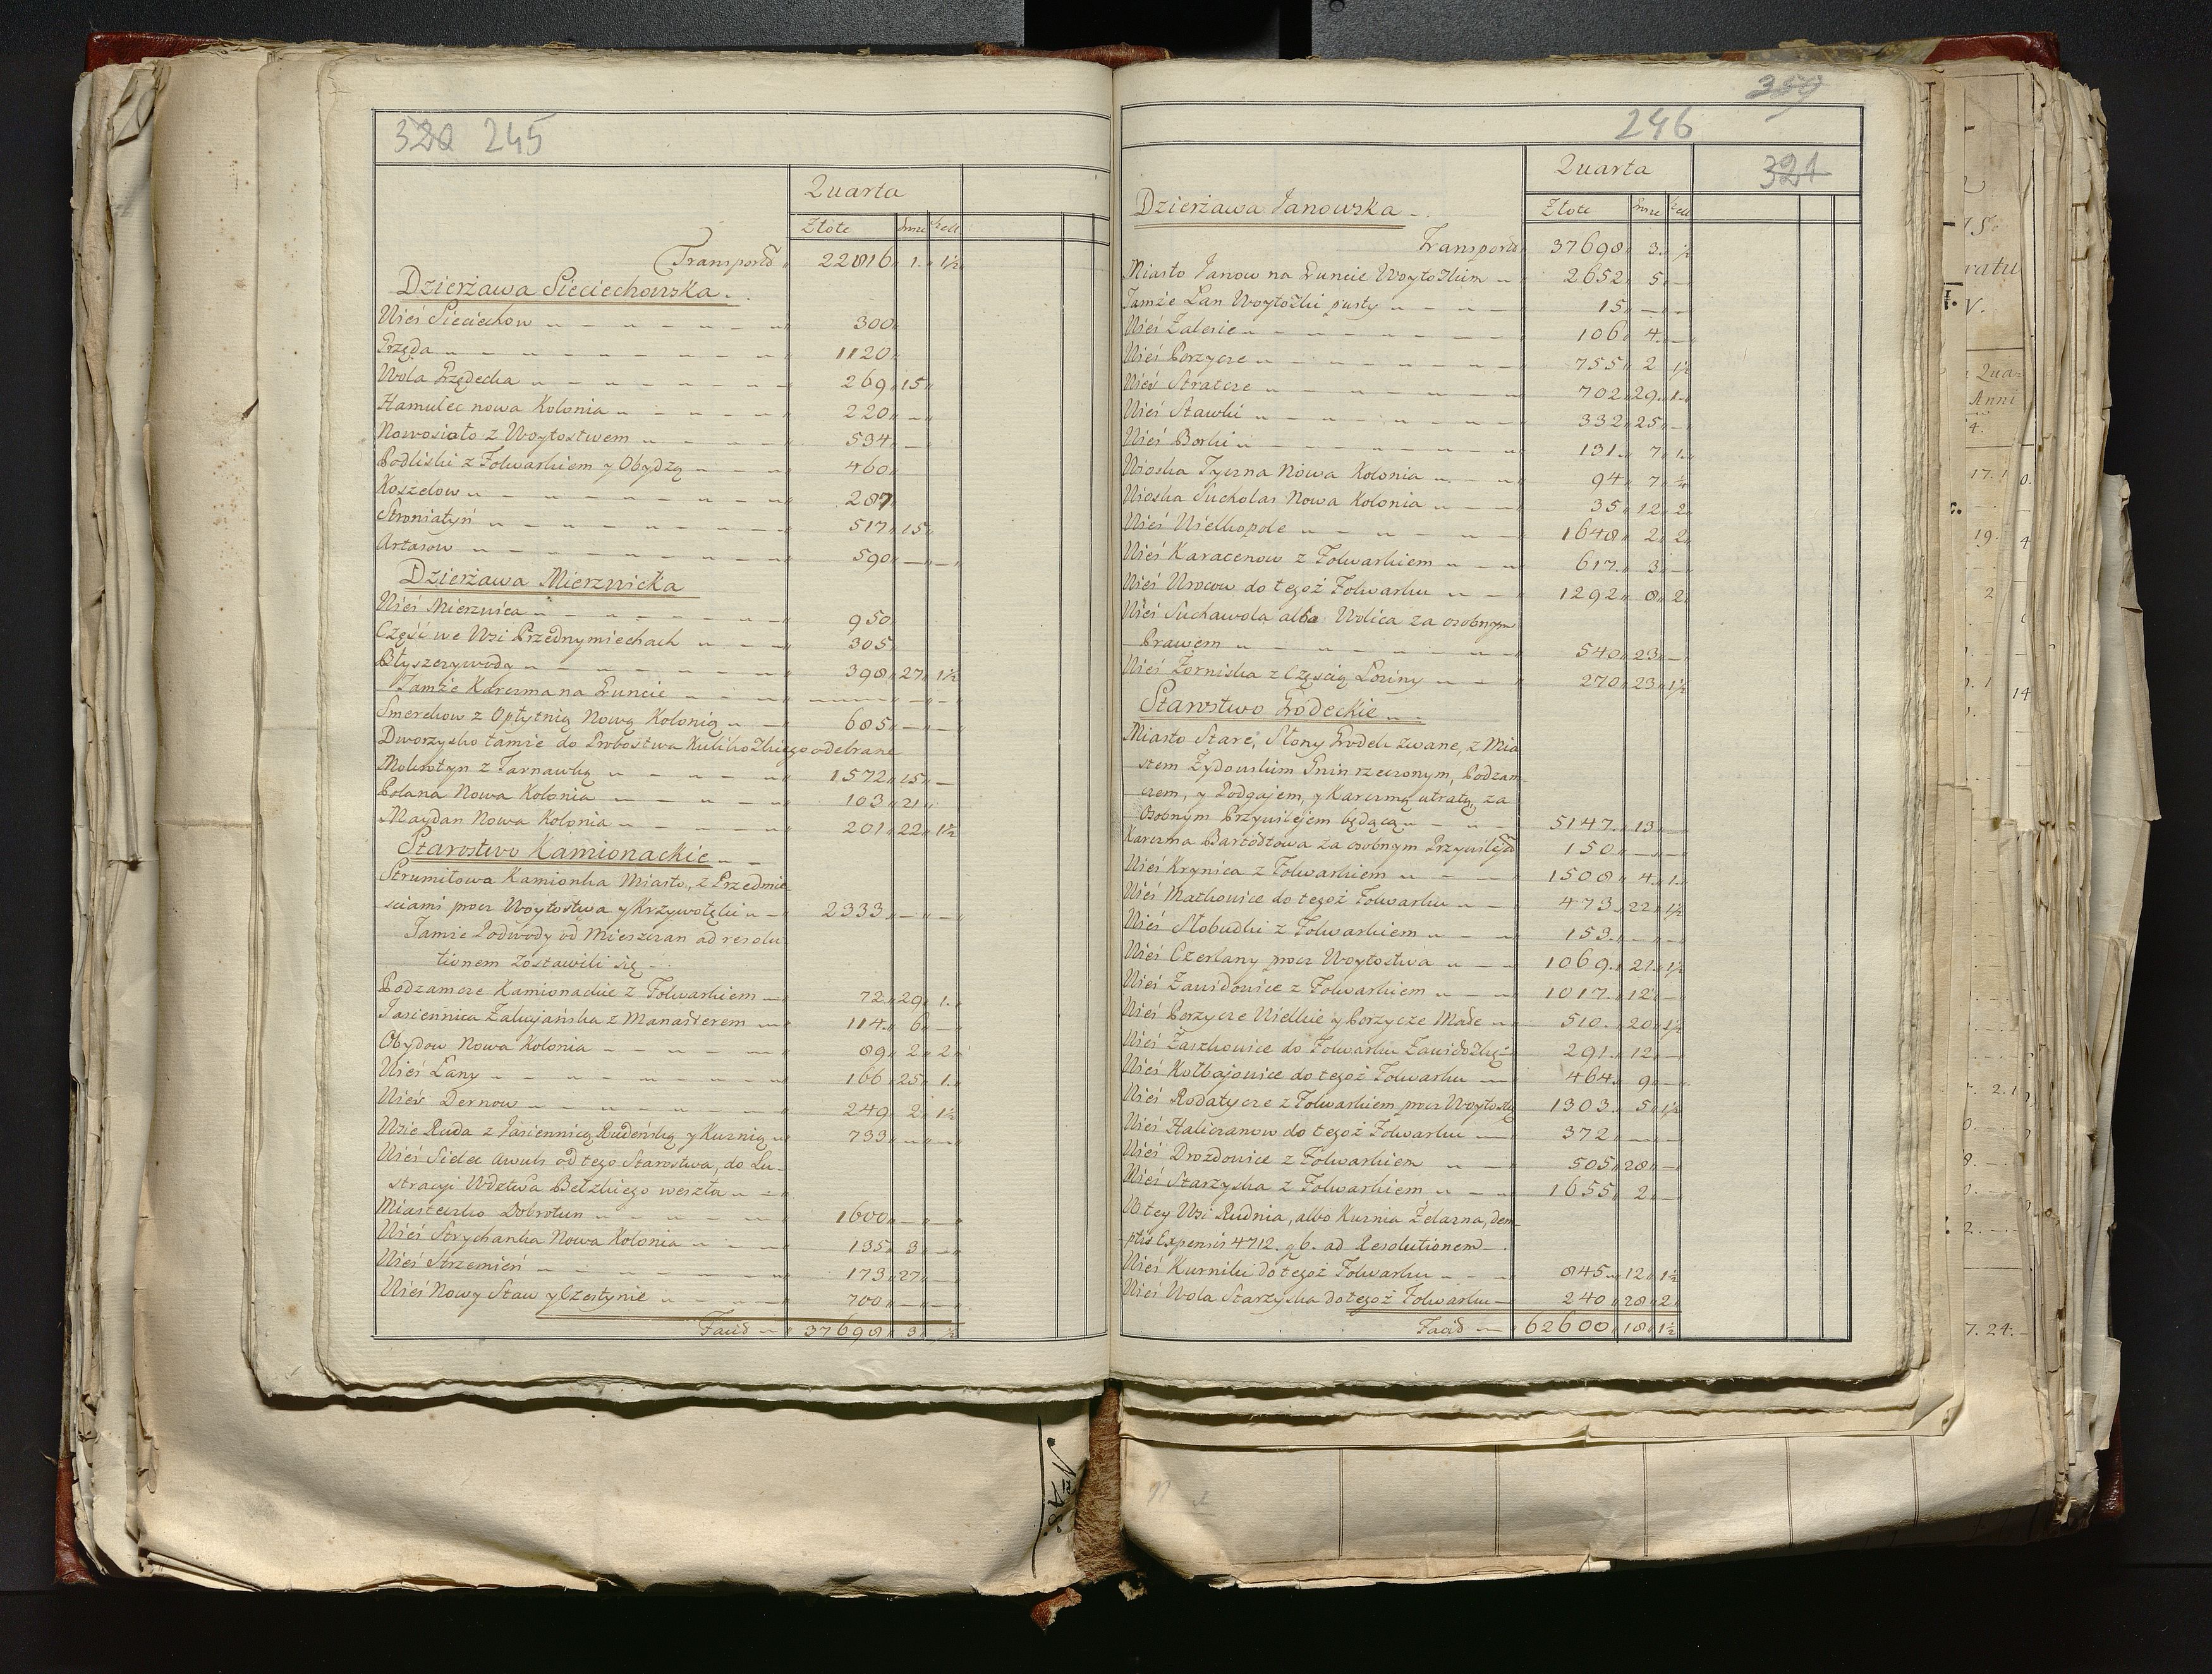 320 245
Quarta
Złote Grosze Szell
Transport 22816 1. 1½
Dzierżawa Sieciechowska
Wieś Sieciechow 300
Przęda 1120
Wola Przędecka 269 15
Hamulec nowa Kolonia 220 —
Nowosioło z Woytostwem 534 —
Podliski z Folwarkiem y Obydzą 460
Koszelow 287
Stroniatyń 517 15
Artasow 590 — —
Dzierżawa Mierzwicka
Wieś Mierzwica 950
Część we Wsi Przednymiechach 305
Błyszczywody 398 27 1½
Tamże Karczma na Gruncie — — —
Smerekow z Opłytnią Nową Kolonią 685 — —
Dworzysko tamże do Probostwa Kulikozkiego odebrane
Mokrotyn z Tarnawką 1572 15 —
Polana Nowa Kolonia 103 21
Maydan Nowa Kolonia 201 22 1½
Starostwo Kamionackie
Strumiłowa Kamionka Miasto, z Przedmie-
sciami procz Woytostwa y Krzywołęki 2333 — —
Tamże Podwody od Mieszczan ad resolu-
tionem zostawili się
Podzamcze Kamionackie z Folwarkiem 72 29 1.
Jasiennica Zakujańska z Manasterem 114 6 —
Obydow Nowa Kolonia 89 2 2
Wieś Łany 166 25 1.
Wieś Dernow 249 2 1½
Wsie Ruda z Jasiennicą Rudeńską y Kuznią 733 — —
Wieś Sielec awuls od tego Starostwa, do Lu-
stracyi Wdztwa Bełzkiego weszła
Miasteczko Dobrotwn 1600 — —
Wieś Strychanka Nowa Kolonia 135 3 —
Wieś Strzemień 173 27 —
Wieś Nowy Staw y Czestynie 700 — —
Facit 37698 3 ½
359
246
Quarta 321
Dzierżawa Janowska
Złote Grosze Szell
Transport 37698 3 ½
Miasto Janow na Gruncie Woytozkim 2652 5 —
Tamże Łan Woytozki pusty 15 — —
Wieś Zalesie 106 4 —
Wieś Porzycze 755 2 1½
Wieś Stratcze 702 29 1
Wieś Stawki 332 25 —
Wieś Borki 131 7 1
Wioska Tyczna Nowa Kolonia 94 7 ½
Wioska Sucholas Nowa Kolonia 35 12 2
Wieś Wielkopole 1648 2 2
Wieś Karaczenow z Folwarkiem 617 3 —
Wieś Wrocow do tegoż Folwarku 1292 8 2
Wieś Suchawola albo Wolica za osobnym
Prawem 540 23 —
Wieś Żorniska z Częscią Łoziny 270 23 1½
Starostwo Grodeckie
Miasto Stare, Słony Grodek zwane, z Mia-
stem Żydowskim Gnin rzeczonym, Podzam-
czem, y Podgajem, y Karczmą utratą, za
Osobnym Przywilejem będącą 5147 13 —
Karczma Bartodzowa za osobnym Przywilejem 150 — —
Wieś Krynica z Folwarkiem 1508 4 1
Wieś Matkowice do tegoż Folwarku 473 22 1½
Wieś Słobudki z Folwarkiem 153 — —
Wieś Czerlany procz Woytostwa 1069 21 1½
Wieś Zawidowice z Folwarkiem 1017 12 —
Wieś Porzycze Wielkie y Porzycze Małe 510 20 1½
Wieś Zaszkowice do Folwarku Zawidozkie 291 12 —
Wieś Kołbajowice do tegoż Folwarku 464 9 —
Wieś Rodatycze z Folwarkiem procz Woytostwa 1303 5 1½
Wieś Haliczanow do tegoż Folwarku 372 — —
Wieś Drozdowice z Folwarkiem 505 28 —
Wieś Starzyska z Folwarkiem 1655 2 —
W tey Wsi Rudnia, albo Kuznia Żelazna, dem-
ptis Expensis 4712. g 6. ad Resolutionem
Wieś Kurniki do tegoż Folwarku 845 12 1½
Wieś Wola Starzyska do tegoż Folwarku 240 28 2
Facit 62600 18 1½